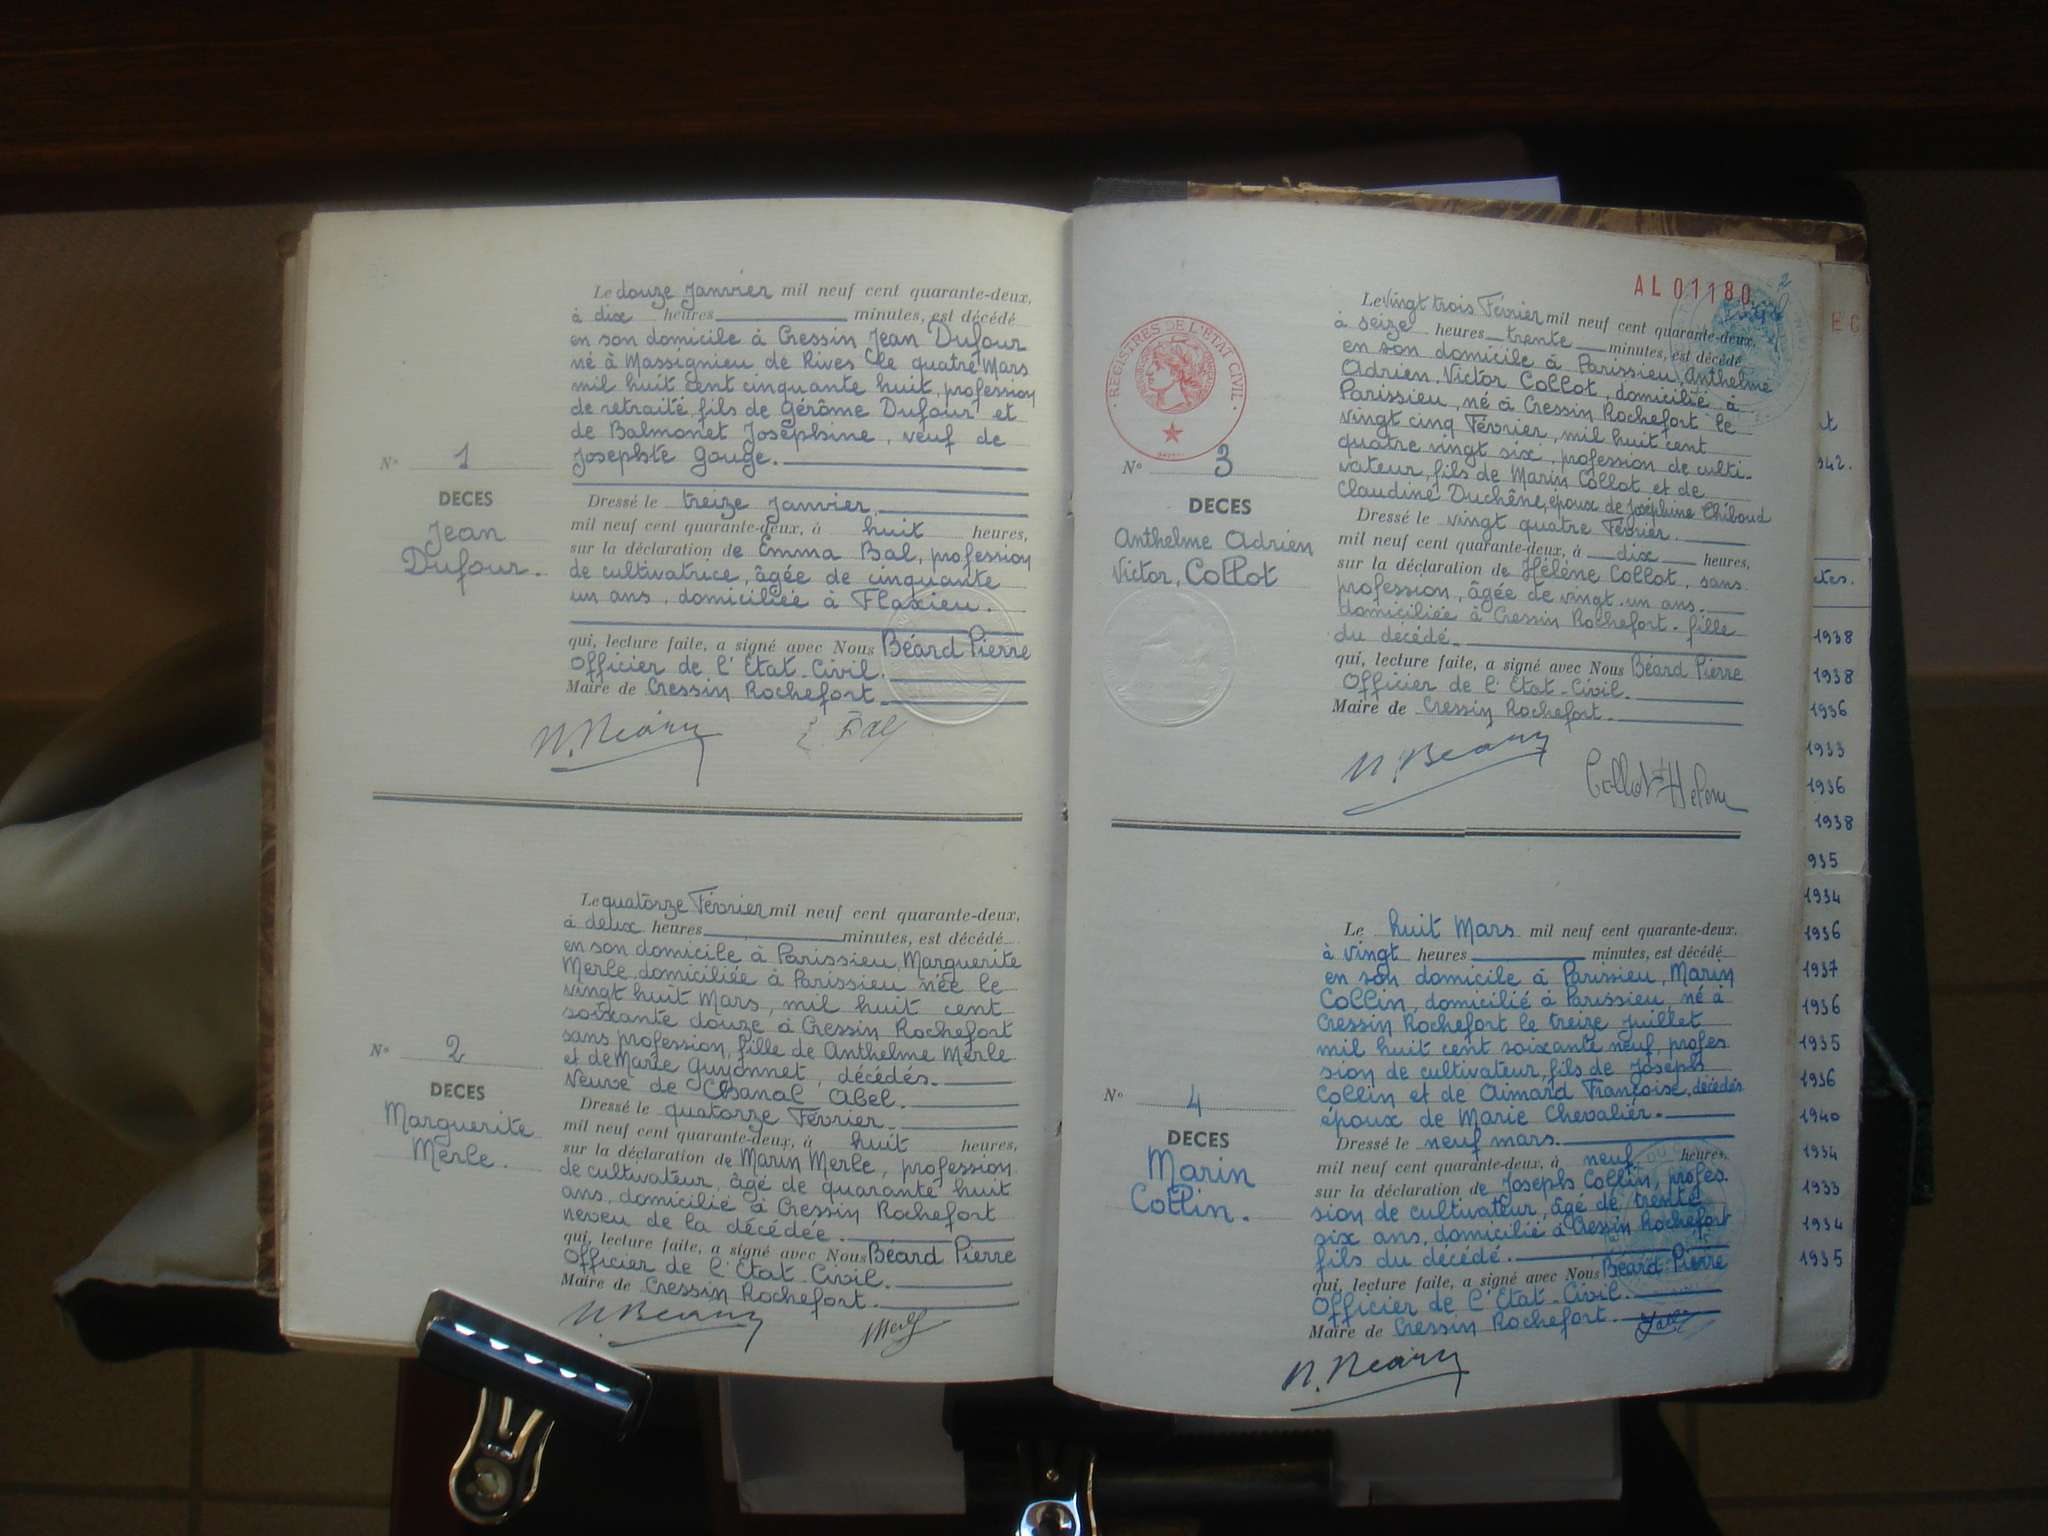 Le douze Janvier mil neuf cent quarante-deux,
à dix heures minutes, est décédé
en son domicile à Cressin Jean Dufour
né à Massignieu de Rives le quatre Mars
mil huit cent cinquante huit, profession
de retraité, fils de Gérôme Dufour et
de Balmonet Joséphine, veuf de
Josephte Gouge.
N° 1
DECES
Jean
Dufour.
Dressé le treize Janvier
mil neuf cent quarante-deux, à huit heures,
sur la déclaration de Emma Bal, profession
de cultivatrice, âgée de cinquante
un ans, domiciliée à Flaxieu.
qui, lecture faite, a signé avec Nous Béard Pierre
Officier de l'Etat-Civil.
Maire de Cressin Rochefort.
Bal
Le quatorze Février mil neuf cent quarante-deux,
à deux heures minutes, est décédé
en son domicile à Parissieu, Marguerite
Merle, domiciliée à Parissieu née le
vingt huit Mars, mil huit cent
soixante douze à Cressin Rochefort
sans profession, fille de Anthelme Merle
et de Marie Guyonnet, décédés.
Veuve de Chanal Abel.
N° 2
DECES
Marguerite
Merle.
Dressé le quatorze Février
mil neuf cent quarante-deux, à huit heures,
sur la déclaration de Marin Merle, profession
de cultivateur, âgé de quarante huit
ans, domicilié à Cressin Rochefort
neveu de la décédée.
qui, lecture faite, a signé avec Nous Béard Pierre
Officier de l'Etat-Civil.
Maire de Cressin Rochefort.
AL 01180
2
REGISTRES DE L'ETAT CIVIL
Le vingt trois Février mil neuf cent quarante-deux,
à seize heures trente minutes, est décédé
en son domicile à Parissieu, Anthelme
Adrien Victor Collot, domicilié à
Parissieu, né à Cressin Rochefort le
vingt cinq Février, mil huit cent
quatre vingt six, profession de culti-
vateur, fils de Marin Collot et de
Claudine Duchêne, époux de Joséphine Chiboud
N° 3
DECES
Anthelme Adrien
Victor, Collot
Dressé le vingt quatre Février.
mil neuf cent quarante-deux, à dix heures,
sur la déclaration de Hélène Collot, sans
profession, âgée de vingt un ans.
domiciliée à Cressin Rochefort. fille
du décédé.
qui, lecture faite, a signé avec Nous Béard Pierre
Officier de l'Etat-Civil.
Maire de Cressin Rochefort.
Collot
Le huit Mars mil neuf cent quarante-deux.
à vingt heures minutes, est décédé
en son domicile à Parissieu, Marin
Collin, domicilié à Parissieu, né à
Cressin Rochefort le treize juillet
mil huit cent soixante neuf, profes
sion de cultivateur, fils de Joseph
Collin et de Aimard Françoise, décédés
époux de Marie Chevalier.
N° 4
DECES
Marin
Collin.
Dressé le neuf mars.
mil neuf cent quarante-deux, à neuf heures,
sur la déclaration de Joseph Collin, profes
sion de cultivateur, âgé de trente
six ans, domicilié à Cressin Rochefort
fils du décédé.
qui, lecture faite, a signé avec Nous Béard Pierre
Officier de l'Etat-Civil.
Maire de Cressin Rochefort.
EC
1938
1938
1936
1933
1936
1938
935
1934
1936
1937
1936
1935
1936
1940
1934
1933
1934
1935